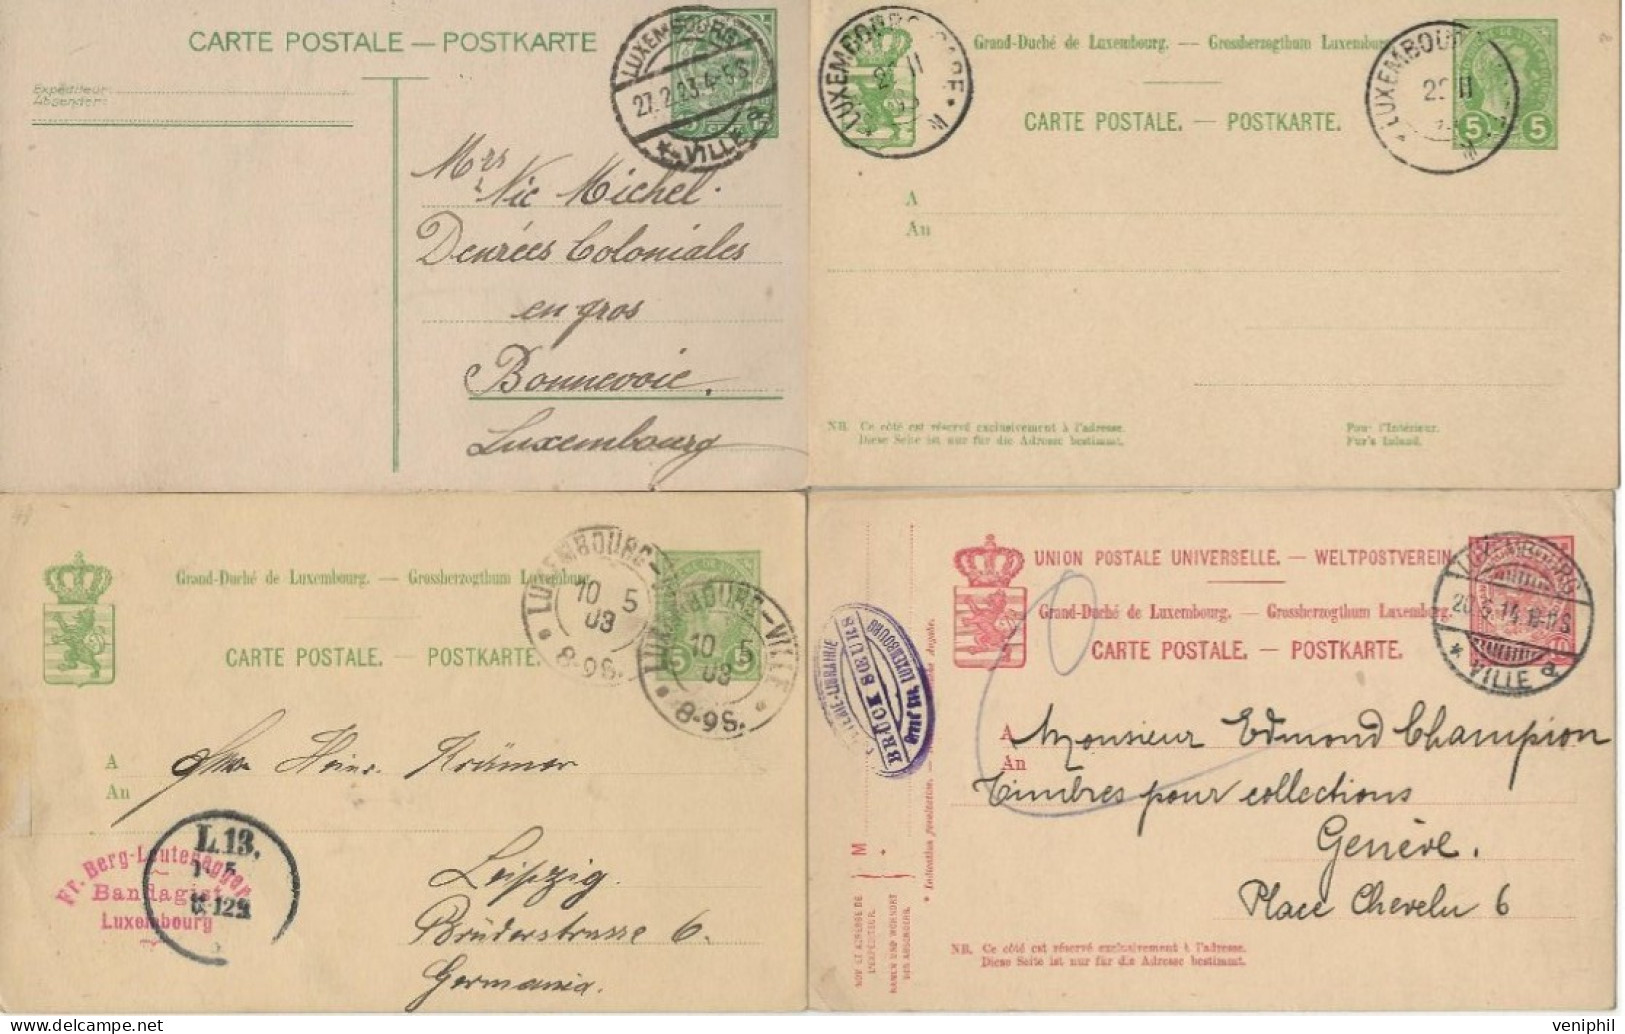 CARTE POSTALE — POSTKARTE
Expéditeur
Absender
LUXEMBOURG
27.2.23.4-5S
VILLE
Mrs
Nic Michel
Denrées Coloniales
en gros
Bonnevoie,
Luxembourg
LUXEMBOURG
Grand-Duché de Luxembourg. — Grossherzogthum Luxemburg
CARTE POSTALE. — POSTKARTE.
LUXEMBOURG
5 5
A
An
NB. Ce côté est réservé exclusivement à l'adresse.
Diese Seite ist nur für die Adresse bestimmt.
Pour l'Intérieur.
Fur's Inland.
Grand-Duché de Luxembourg. — Grossherzogthum Luxemburg.
CARTE POSTALE. — POSTKARTE.
LUXEMBOURG-VILLE
10 5
03
8-9S.
LUXEMBOURG-VILLE
10 5
03
8-9S.
A
An
Heinr. Krämer
Leipzig.
Brüderstrasse 6.
Germania.
L.13.
Fr. Berg-Lautenagger
Bandagist
Luxembourg
UNION POSTALE UNIVERSELLE. — WELTPOSTVEREIN
Grand-Duché de Luxembourg. — Grossherzogthum Luxemburg.
CARTE POSTALE. — POSTKARTE.
LUXEMBOURG
VILLE
BRÜCK SŒURS
LUXEMBOURG
A
An
Monsieur Edmond Champion
Timbres pour collections
Genève.
Place Chevelu 6
M
NOM ET ADRESSE DE
L'EXPÉDITEUR.
NAMEN UND WOHNORT
DES ABSENDERS.
NB. Ce côté est réservé exclusivement à l'adresse.
Diese Seite ist nur für die Adresse bestimmt.
veniphil